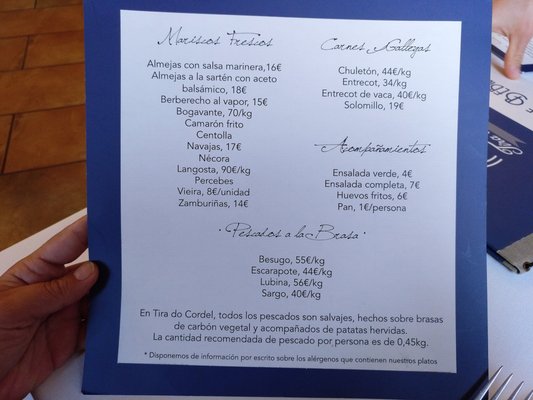 Mariscos Frescos
Almejas con salsa marinera,16€
Almejas a la sartén con aceto
balsámico, 18€
Berberecho al vapor, 15€
Bogavante, 70/kg
Camarón frito
Centolla
Navajas, 17€
Nécora
Langosta, 90€/kg
Percebes
Vieira, 8€/unidad
Zamburiñas, 14€
Carnes Gallegas
Chuletón, 44€/kg
Entrecot, 34/kg
Entrecot de vaca, 40€/kg
Solomillo, 19€
Acompañamientos
Ensalada verde, 4€
Ensalada completa, 7€
Huevos fritos, 6€
Pan, 1€/persona
· Pescados a la Brasa ·
Besugo, 55€/kg
Escarapote, 44€/kg
Lubina, 56€/kg
Sargo, 40€/kg
En Tira do Cordel, todos los pescados son salvajes, hechos sobre brasas
de carbón vegetal y acompañados de patatas hervidas.
La cantidad recomendada de pescado por persona es de 0,45kg.
* Disponemos de información por escrito sobre los alérgenos que contienen nuestros platos